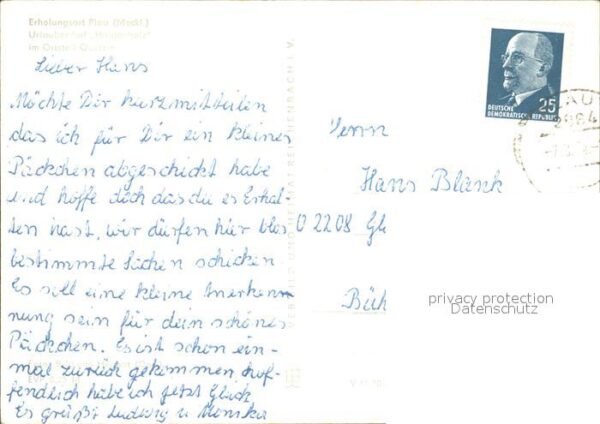 Erholungsort Plau (Meckl.)
Lieber Hans
Möchte Dir kurz mitteilen
das ich für Dir ein kleines
Päckchen abgeschickt habe
und hoffe doch das du es Erhal-
ten hast, wir dürfen hier blos
bestimmte Sachen schicken.
Es soll eine kleine Anerken
nung sein für dein schönes
Päckchen. Es ist schon ein-
mal zurück gekommen hof-
fendlich habe ich jetzt Glück
Es grüßt Ludwig u Monika
25
DEUTSCHE
DEMOKRATISCHE REPUBLIK
PLAU
Herrn
Hans Blank
O 2208 Gl
Büch
privacy protection
Datenschutz